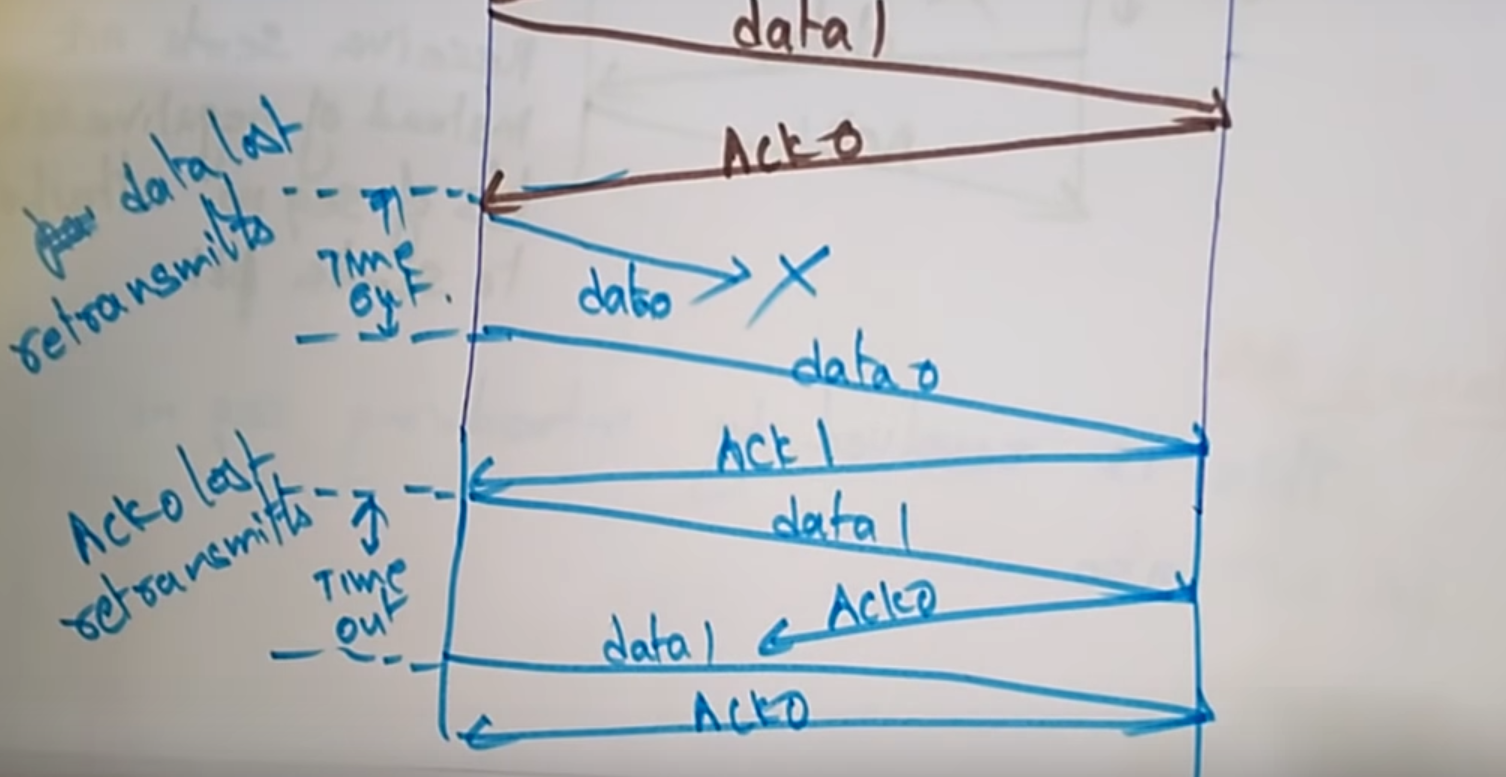 data 1
Ack 0
data lost
retransmitts
Time
out.
data0
X
data 0
Ack 1
Ack 0 lost
retransmitts
data 1
Time
out
Ack 0
data 1
Ack 0